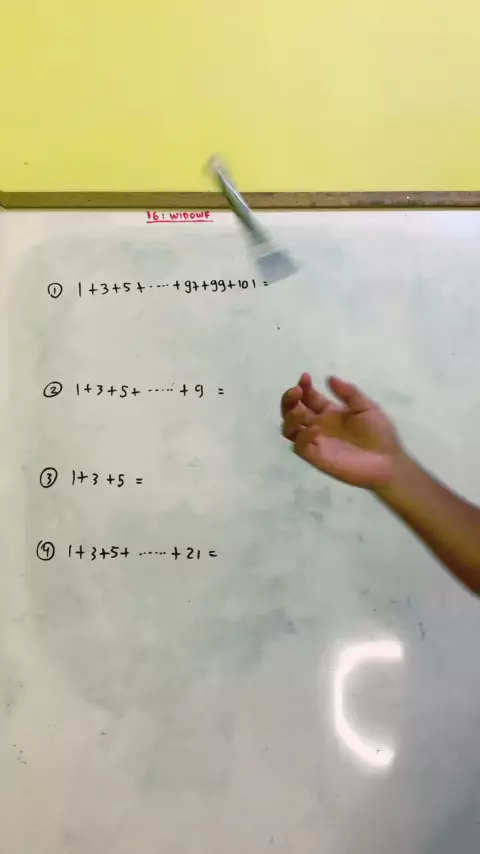 16: WIDOWF
① 1+3+5+.....+97+99+101=
② 1+3+5+.....+9 =
③ 1+3+5 =
④ 1+3+5+ ......+21=